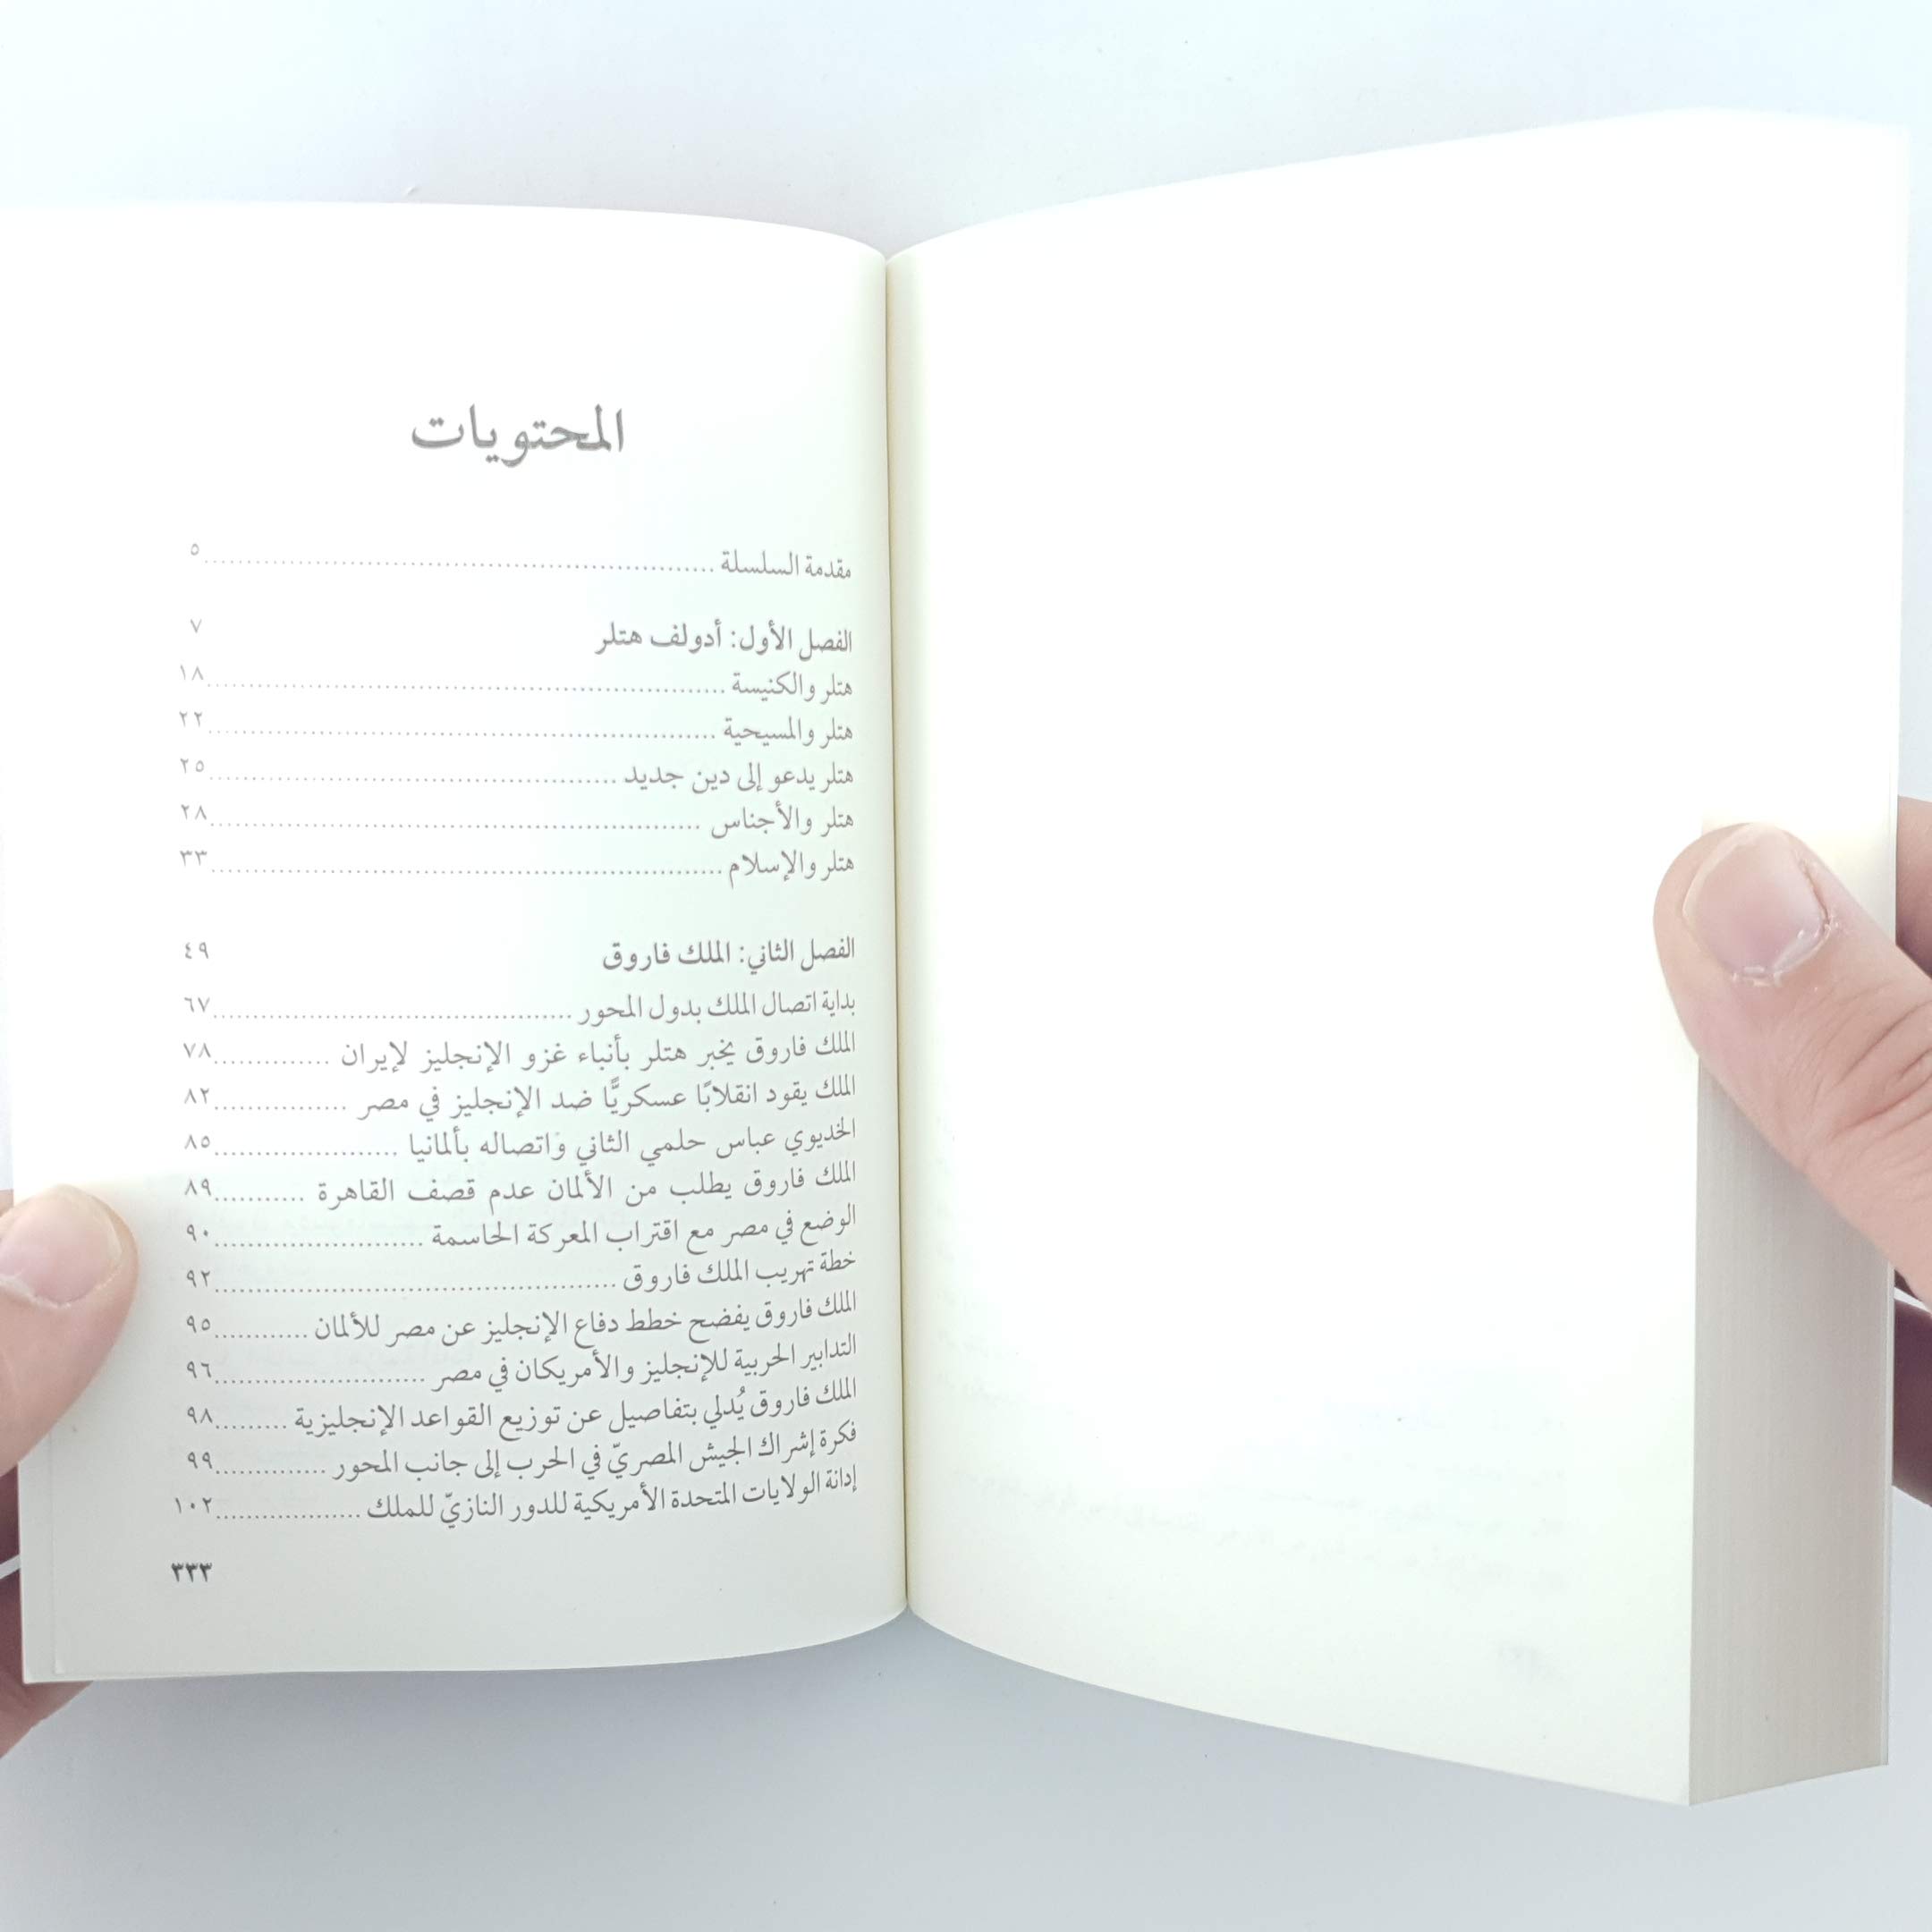 المحتويات
مقدمة السلسلة ........ ٥
الفصل الأول: أدولف هتلر ٧
هتلر والكنيسة ........ ١٨
هتلر والمسيحية ........ ٢٢
هتلر يدعو إلى دين جديد ........ ٢٥
هتلر والأجناس ........ ٢٨
هتلر والإسلام ........ ٣٣
الفصل الثاني: الملك فاروق ٤٩
بداية اتصال الملك بدول المحور ........ ٦٧
الملك فاروق يخبر هتلر بأنباء غزو الإنجليز لإيران ........ ٧٨
الملك يقود انقلابًا عسكريًّا ضد الإنجليز في مصر ........ ٨٢
الخديوي عباس حلمي الثاني واتصاله بألمانيا ........ ٨٥
الملك فاروق يطلب من الألمان عدم قصف القاهرة ........ ٨٩
الوضع في مصر مع اقتراب المعركة الحاسمة ........ ٩٠
خطة تهريب الملك فاروق ........ ٩٢
الملك فاروق يفضح خطط دفاع الإنجليز عن مصر للألمان ........ ٩٥
التدابير الحربية للإنجليز والأمريكان في مصر ........ ٩٦
الملك فاروق يُدلي بتفاصيل عن توزيع القواعد الإنجليزية ........ ٩٨
فكرة إشراك الجيش المصريّ في الحرب إلى جانب المحور ........ ٩٩
إدانة الولايات المتحدة الأمريكية للدور النازيّ للملك ........ ١٠٢
٣٣٣